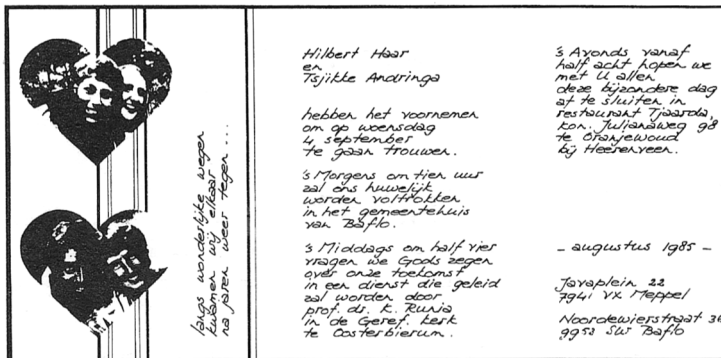 langs wonderlijke wegen
kwamen wij elkaar
na jaren weer tegen ...
Hilbert Haar
en
Tsjikke Andringa
hebben het voornemen
om op woensdag
4 september
te gaan trouwen.
's Morgens om tien uur
zal ons huwelijk
worden voltrokken
in het gemeentehuis
van Baflo.
's Middags om half vier
vragen we Gods zegen
over onze toekomst
in een dienst die geleid
zal worden door
prof. dr. K. Runia
in de Geref. kerk
te Oosterbierum.
's Avonds vanaf
half acht hopen we
met U allen
deze bijzondere dag
af te sluiten in
restaurant Tjaarda,
Kon. Julianaweg 98
te Oranjewoud
bij Heerenveen.
- augustus 1985 -
Javaplein 22
7941 VX Meppel
Noordewierstraat
9953 Baflo